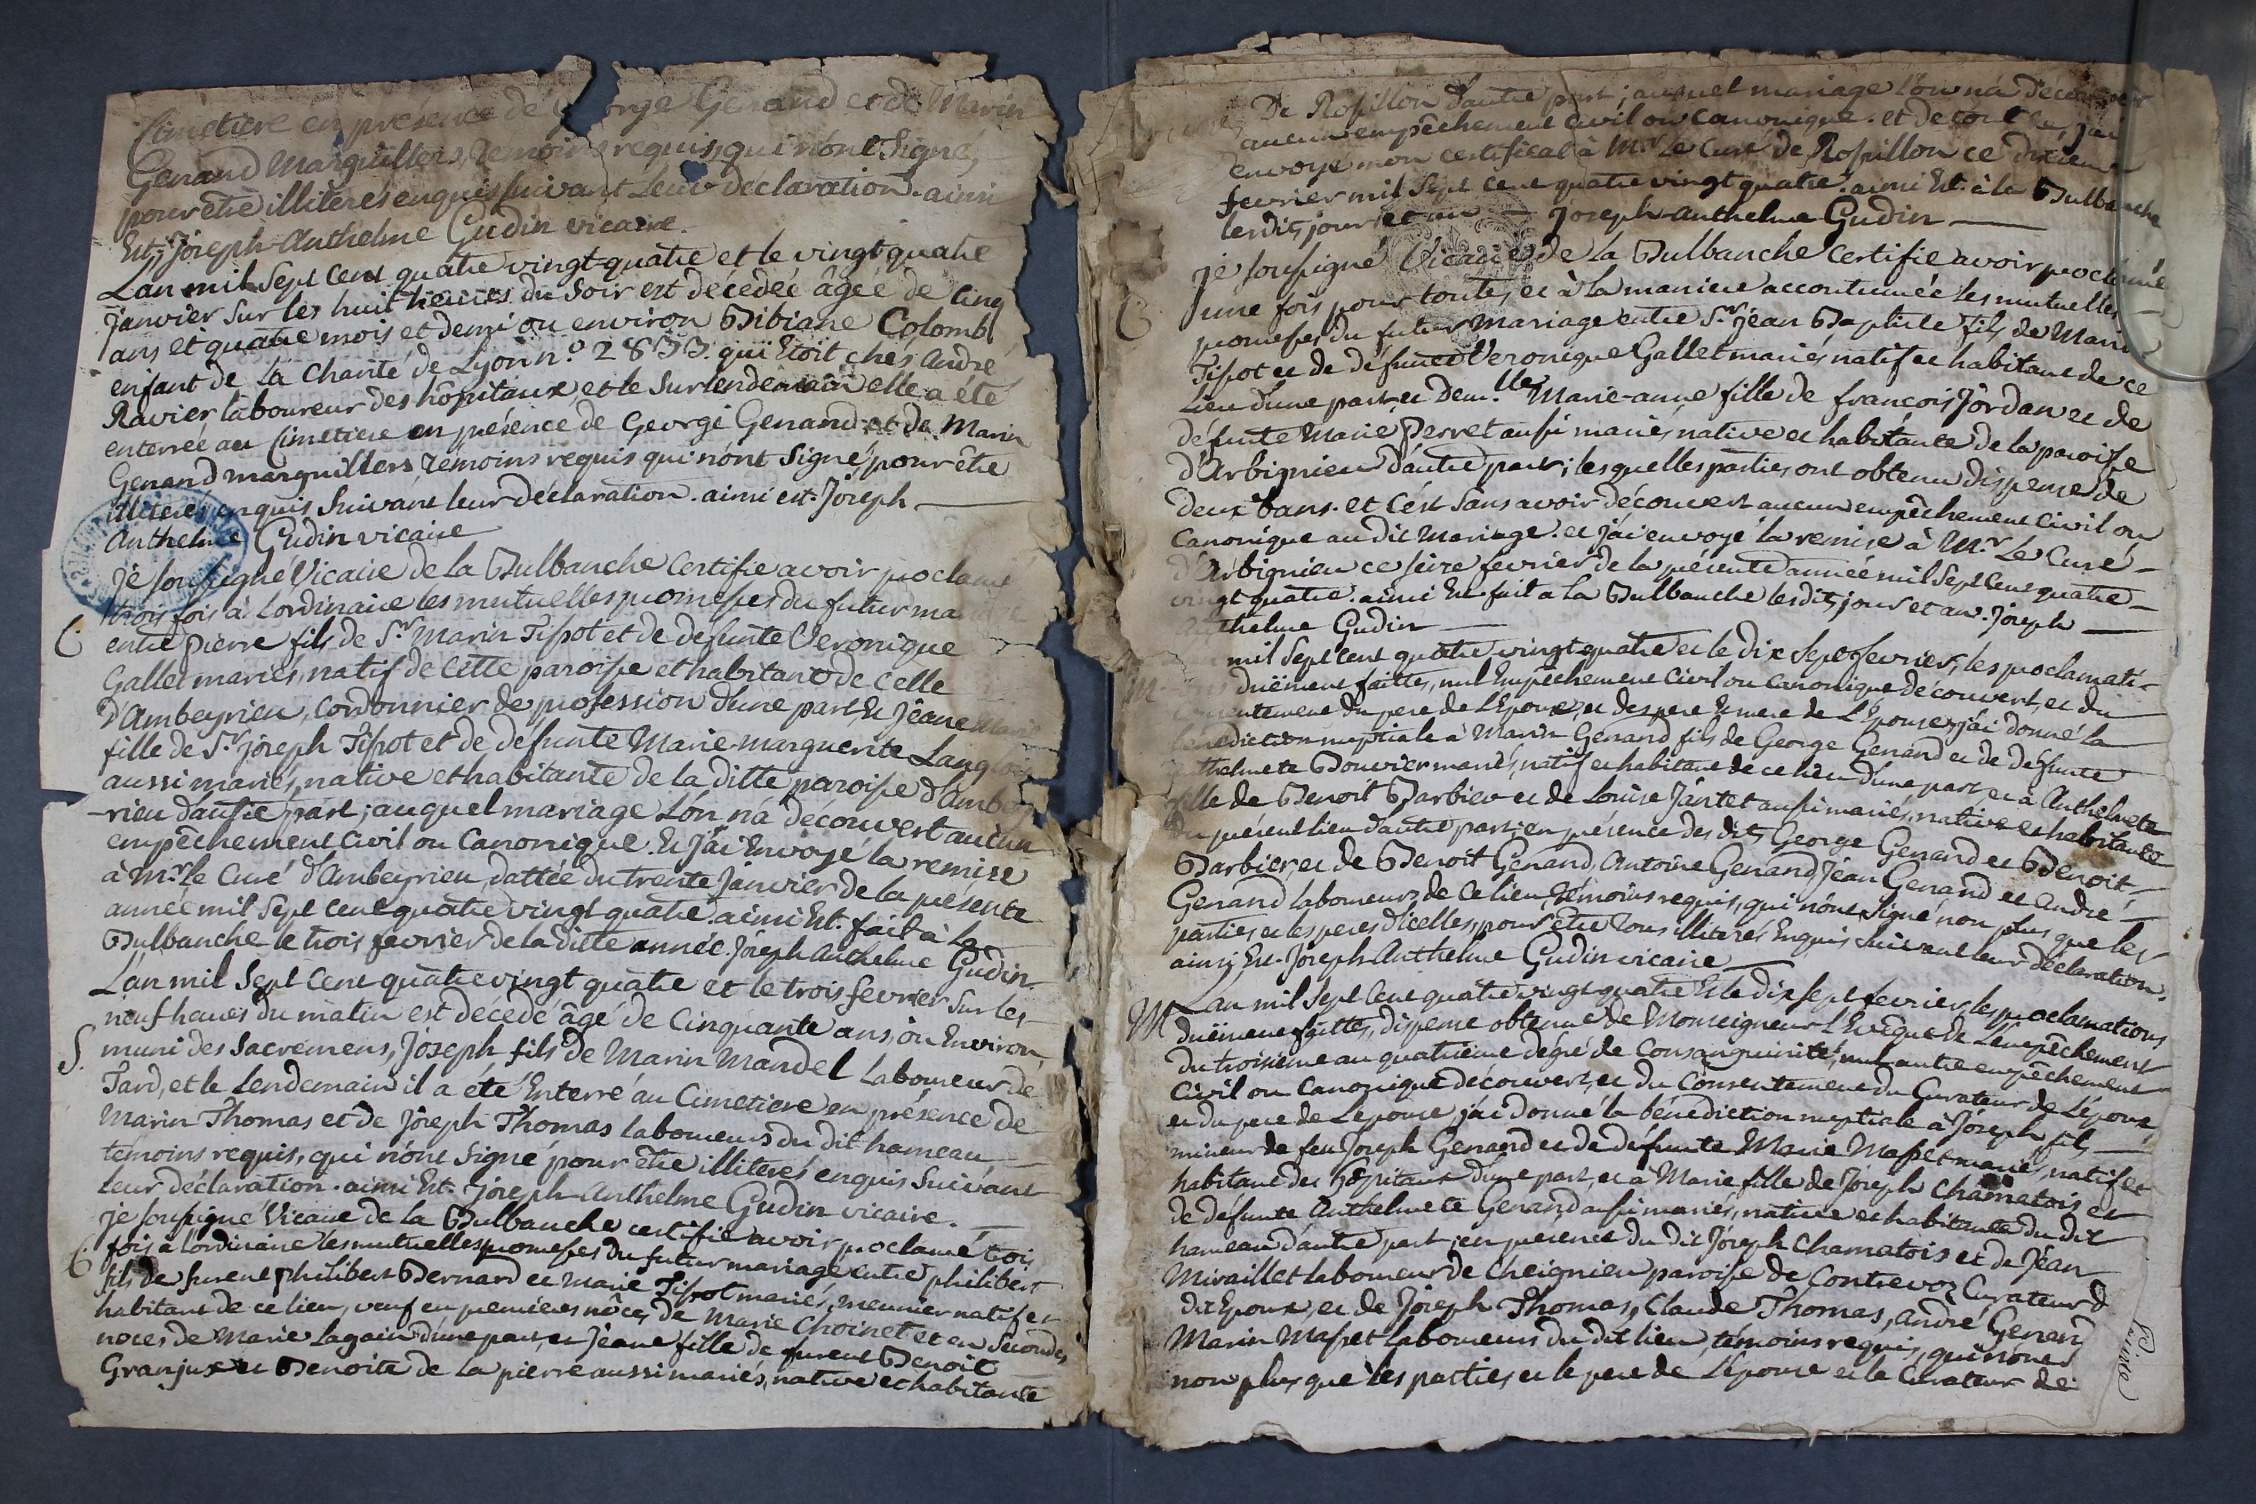 Cimetiere en présence de George Genand et de Marin
Genand Marguilliers, temoins requis, qui n'ont Signé,
pour étre illiterés enquis suivant leur déclaration. ainsi
Est. Joseph-Anthelme Gudin vicaire.
L'an mil Sept cent quatre vingt-quatre et le vingt quatre
janvier sur les huit heures du Soir est décédeé âgeé de Cinq
ans et quatre mois et demi ou environ Bibiane Colomb
enfant de la Charité de Lyon n.º 2833. qui Etoit chés André
Ravier laboureur des hôpitaux, et le Surlendemain elle a été
enterreé au Cimetiere en présence de George Genand et de Marin
Genand marguilliers temoins requis qui n'ont Signé, pour être
illiterés enquis Suivant leur déclaration. ainsi est. Joseph
Anthelme Gudin vicaire
Je soussigné Vicaire de la Bulbanche Certifie avoir proclamé
trois fois à l'ordinaire les mutuelles promesses du futur ma
C. entre Pierre fils de S.r Marin Tissot et de defunte Veronique
Gallet mariés, natif de Cette paroisse et habitant de Celle
d'Ambeyrieu, Cordonnier de profession d'une part, Et Jeane Marie
fille de S.r joseph Tissot et de defunte Marie-marguerite Langlois
aussi mariés, native et habitante de la ditte paroisse d'Ambey
-rieu d'autre part; auquel mariage l'on n'a découvert aucun
empêchement Civil ou Canonique. Et j'ai Envoyé la remise
à M.r le Curé d'Ambeyrieu, dattée du trente Janvier de la présente
anneé mil Sept Cent quatre vingt quatre. ainsi Est. fait à la
Bulbanche le trois fevrier de la ditte année. joseph Anthelme Gudin
L'an mil Sept Cent quatre vingt quatre et le trois fevrier Sur les
neuf heures du matin est décédé âgé de Cinquante ans, ou Environ
S. muni des Sacremens, Joseph fils de Marin Mandel Laboureur de
Tard, et le Lendemain il a été Enterré au Cimetiere en présence de
Marin Thomas et de Joseph Thomas laboureurs du dit hameau
temoins requis, qui n'ont Signé pour être illiterés enquis Suivant
leur déclaration. ainsi Est. joseph-Anthelme Gudin vicaire.
je soussigné Vicaire de la Bulbanche certifie avoir proclamé trois
C. fois à l'ordinaire les mutuelles promesses du futur mariage entre philibert
fils de furent Philibert Bernard et Marie Tissot mariés, meunier natif et
habitant de ce lieu, veuf en premieres nôces de Marie Choinet et en Secondes
noces de Marie Lagain d'une part, et Jeane fille de furent Benoit
Granjux et Benoite de la pierre aussi mariés, native et habitante
De Rossillon d'autre part; auquel mariage l'on n'a découvert
aucun empêchement Civil ou Canonique. et de tout ce, j'ai
envoyé mon certificat à M.r Le Curé de Rossillon ce dixieme
fevrier mil Sept cent quatre vingt quatre. ainsi Est. à la Bulbanche
lesdits jour et an — joseph-Anthelme Gudin
je soussigné Vicaire de la Bulbanche Certifie avoir proclamé
C. une fois pour toutes, et à la maniere accoutumeé les mutuelles
promesses du futur Mariage entre S.r jean Baptiste fils de Marin
Tissot et de défunte Veronique Gallet mariés, natif et habitant de ce
Lieu d'une part, et Dem.lle Marie-anne fille de francois Jordan et de
défunte Marie Perret aussi mariés, native et habitante de la paroisse
d'Arbignieu d'autre part; lesquelles parties ont obtenu dispense de
deux bans. et C'est Sans avoir découvert aucun empêchement Civil ou
Canonique au dit Mariage. et j'ai envoyé la remise à M.r Le Curé
d'Arbignieu ce seize fevrier de la présente année mil Sept Cent quatre
vingt quatre. ainsi Est. fait a la Bulbanche lesdits jour et an. Joseph
thelme Gudin
mil Sept cent quatre vingt quatre et le Dix Sept fevrier, les proclamati-
M duëment faittes, nul Empêchement Civil ou Canonique découvert, et du
sentement du pere de L'Epoux, et des pere et mere de L'Epouse, j'ai donné la
bénédiction nuptiale à Marin Genand fils de George Genand et de défunte
thelmete Bouvier mariés, natif et habitant de ce lieu d'une part et à Anthelmete
fille de Benoit Barbier et de Louise Jantet aussi mariés, native et habitante
du présent lieu d'autre part; en présence des dits George Genand et Benoit
Barbier, et de Benoit Genand, Antoine Genand, Jean Genand et andré
Genand laboureurs de Ce lieu, témoins requis, qui n'ont Signé non plus que les
parties et les peres d'icelles, pour étre tous illiterés Enquis Suivant leur déclaration.
ainsi Est. Joseph-Anthelme Gudin vicaire
M L'an mil Sept Cent quatre vingt-quatre Et le Dix sept fevrier, les proclamations
duëment faittes, dispense obtenue de Monseigneur L'Evêque de L'empêchement
du troisieme au quatrieme dégré de Consanguinité, nul autre empêchement
Civil ou Canonique découvert, et du Consentement du Curateur de L'époux
et du pere de L'epouse, j'ai donné la bénédiction nuptiale à Joseph fils
mineur de feu Joseph Genand et de défunte Marie Masset mariés, natif et
habitant des hôpitaux d'une part, et à Marie fille de Joseph Chamatois et
de défunte Anthelmete Genand aussi mariés, native et habitante du dit
hameau d'autre part; en présence du dit Joseph Chamatois et de Jean
Miraillet laboureur de Cheignieu paroisse de Contrevoz Curateur d
dit Epoux, et de Joseph Thomas, Claude Thomas, André Genand
Marin Masset laboureurs du dit lieu, temoins requis, qui n'ont
non plus que les parties et le pere de L'epouse et le Curateur de